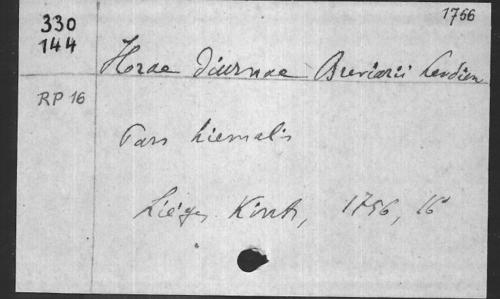 1766
330
144
Horae Diurnae Breviarii Leodien
RP 16
Pars hiemalis
Liége, Kints, 1766, 16°